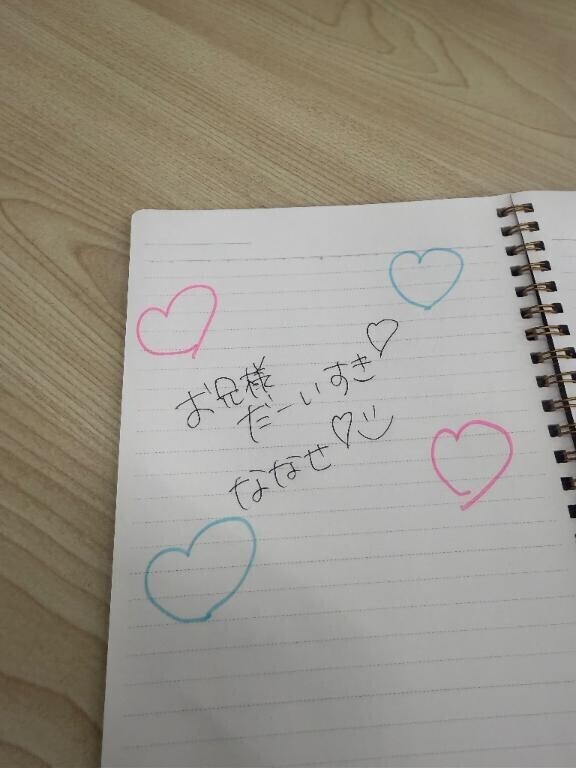 お兄様
だーいすき♡
ななせ♡